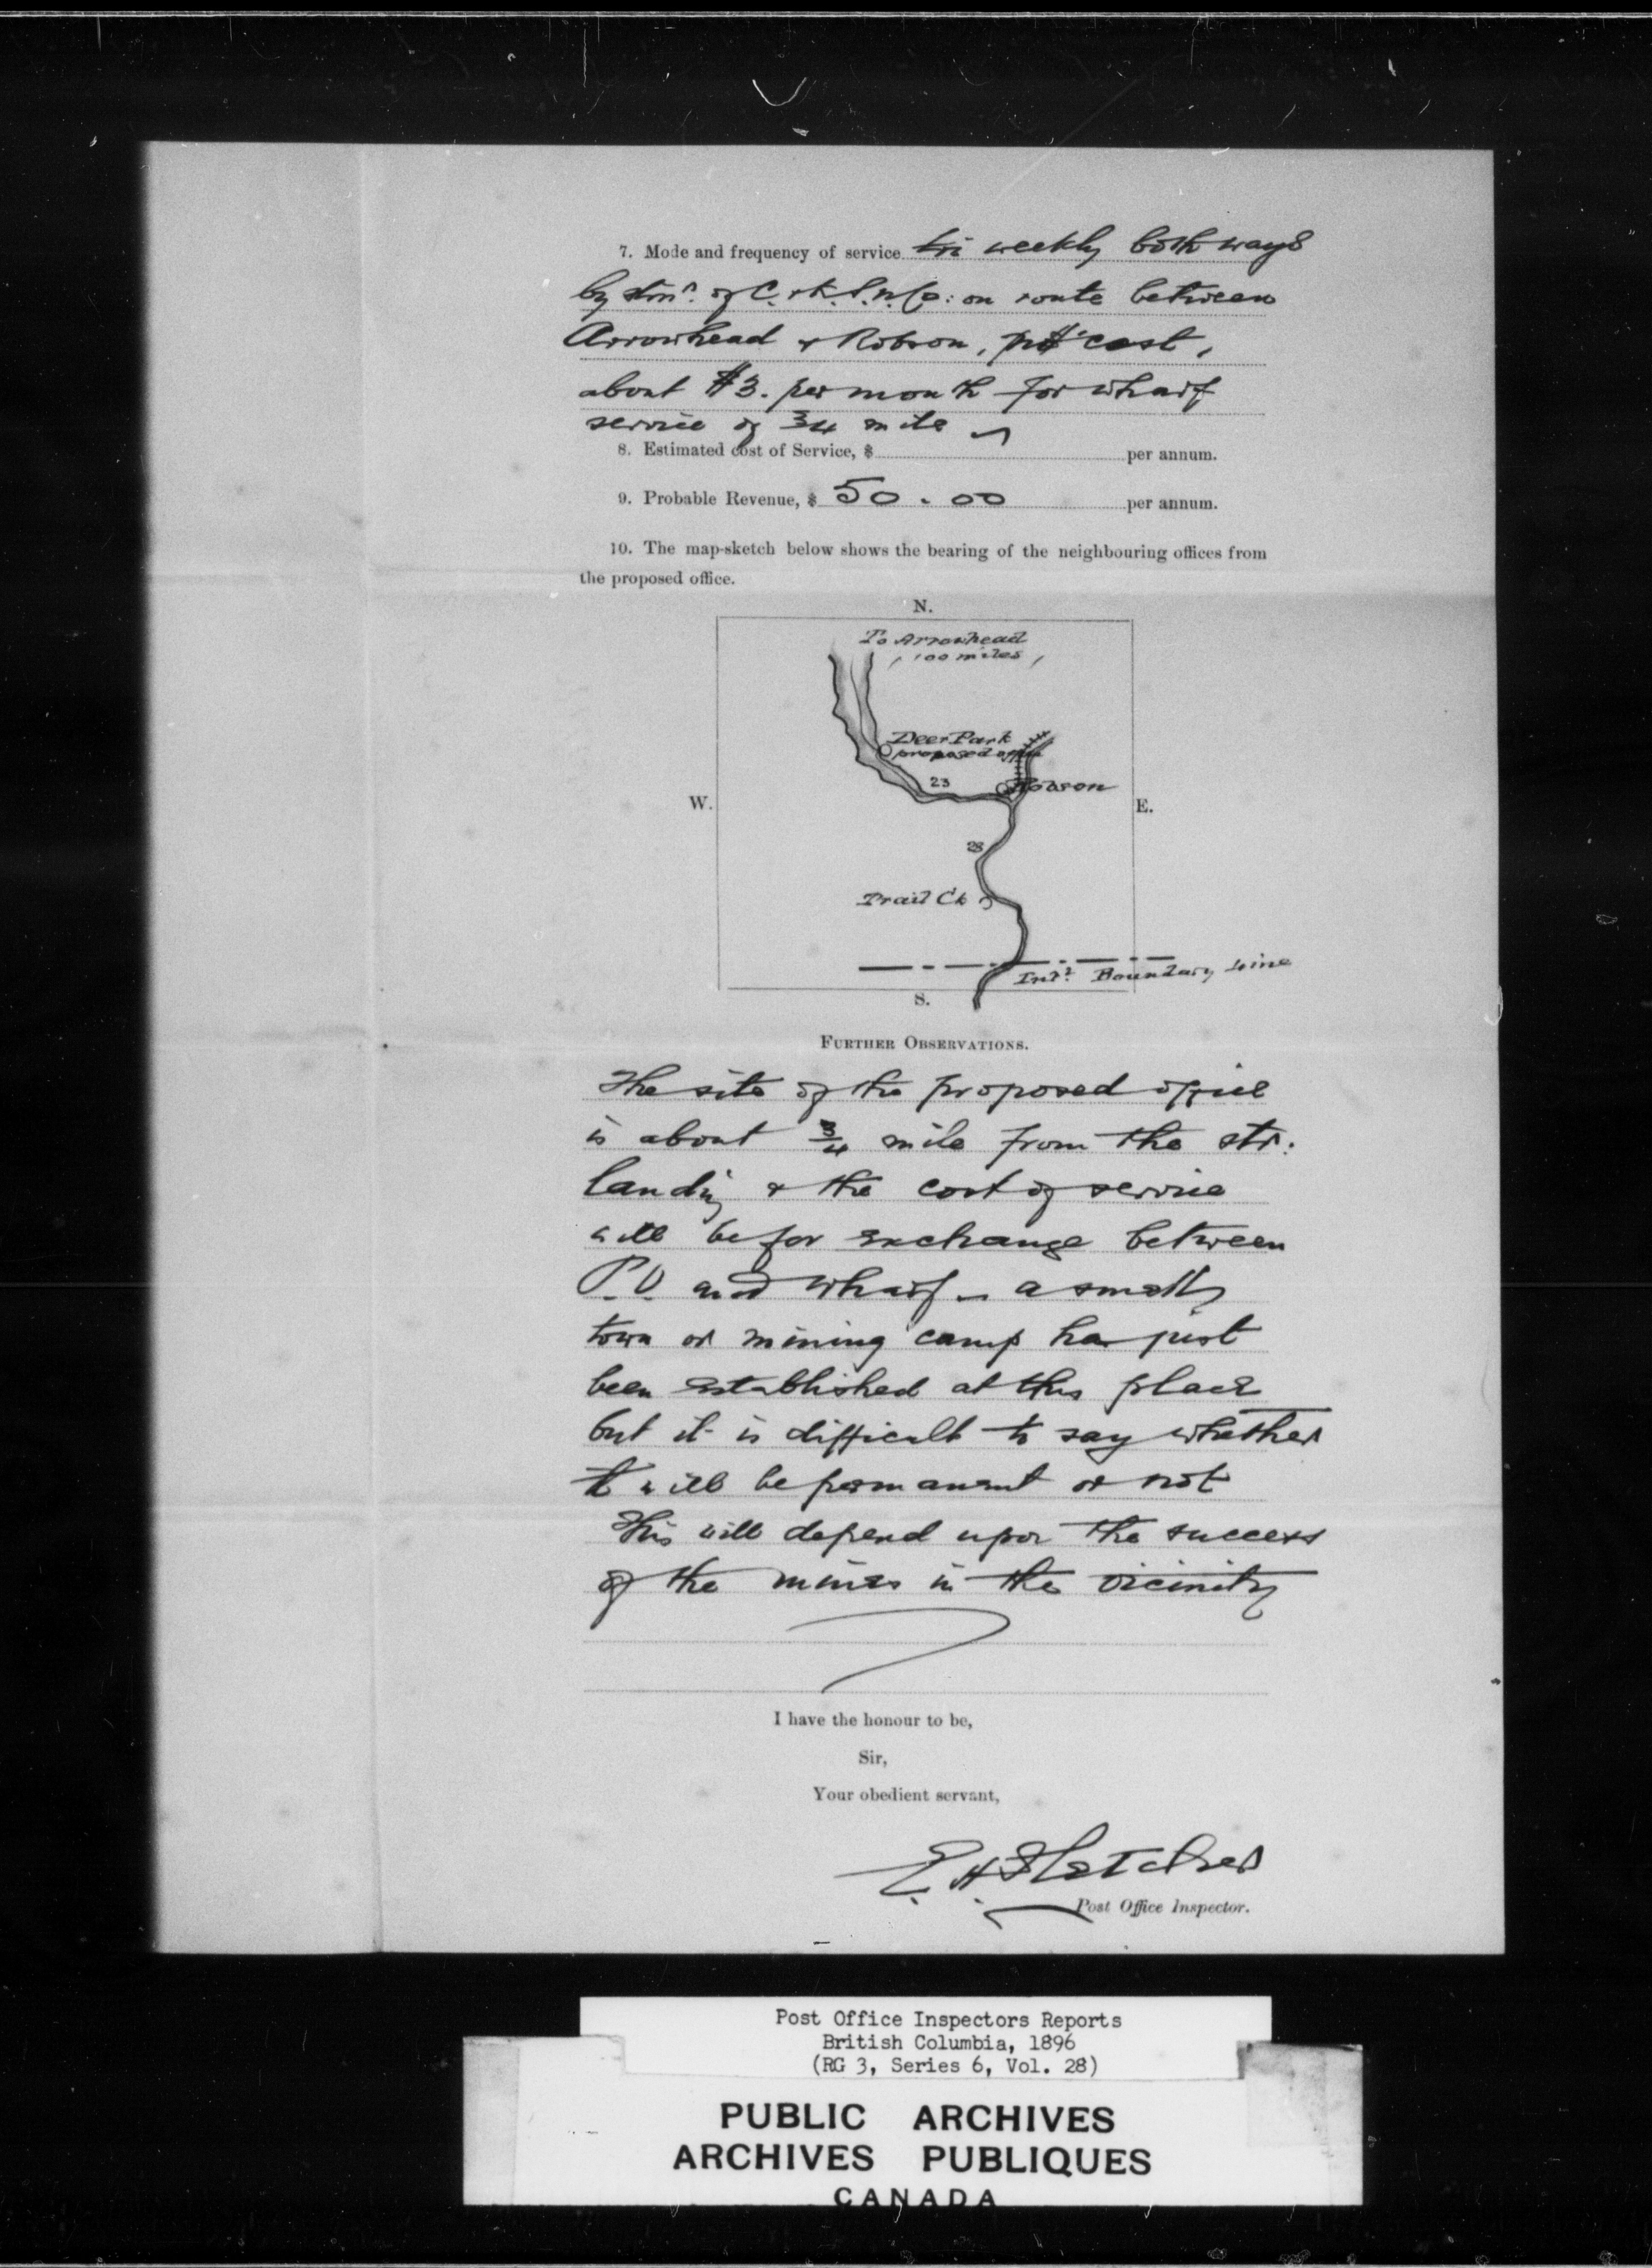 7. Mode and frequency of service tri weekly both ways
by stmr. of C. & K. S. N. Co: on route between
Arrowhead & Robson, cost,
about $3. per month for wharf
service of 3/4 mile
8. Estimated cost of Service, $ per annum.
9. Probable Revenue, $ 50.00 per annum.
10. The map-sketch below shows the bearing of the neighbouring offices from
the proposed office.
N.
To Arrowhead
100 miles
Deer Park
proposed office
23
Robson
W.
E.
28
Trail Ck
Intl. Boundary Line
S.
FURTHER OBSERVATIONS.
The site of the proposed office
is about 3/4 mile from the str.
landing & the cost of service
will be for exchange between
P.O. and wharf - a small
town or mining camp has just
been established at this place
but it is difficult to say whether
it will be permanent or not
This will depend upon the success
of the mines in the vicinity
I have the honour to be,
Sir,
Your obedient servant,
E H Fletcher
Post Office Inspector.
Post Office Inspectors Reports
British Columbia, 1896
(RG 3, Series 6, Vol. 28)
PUBLIC ARCHIVES
ARCHIVES PUBLIQUES
CANADA